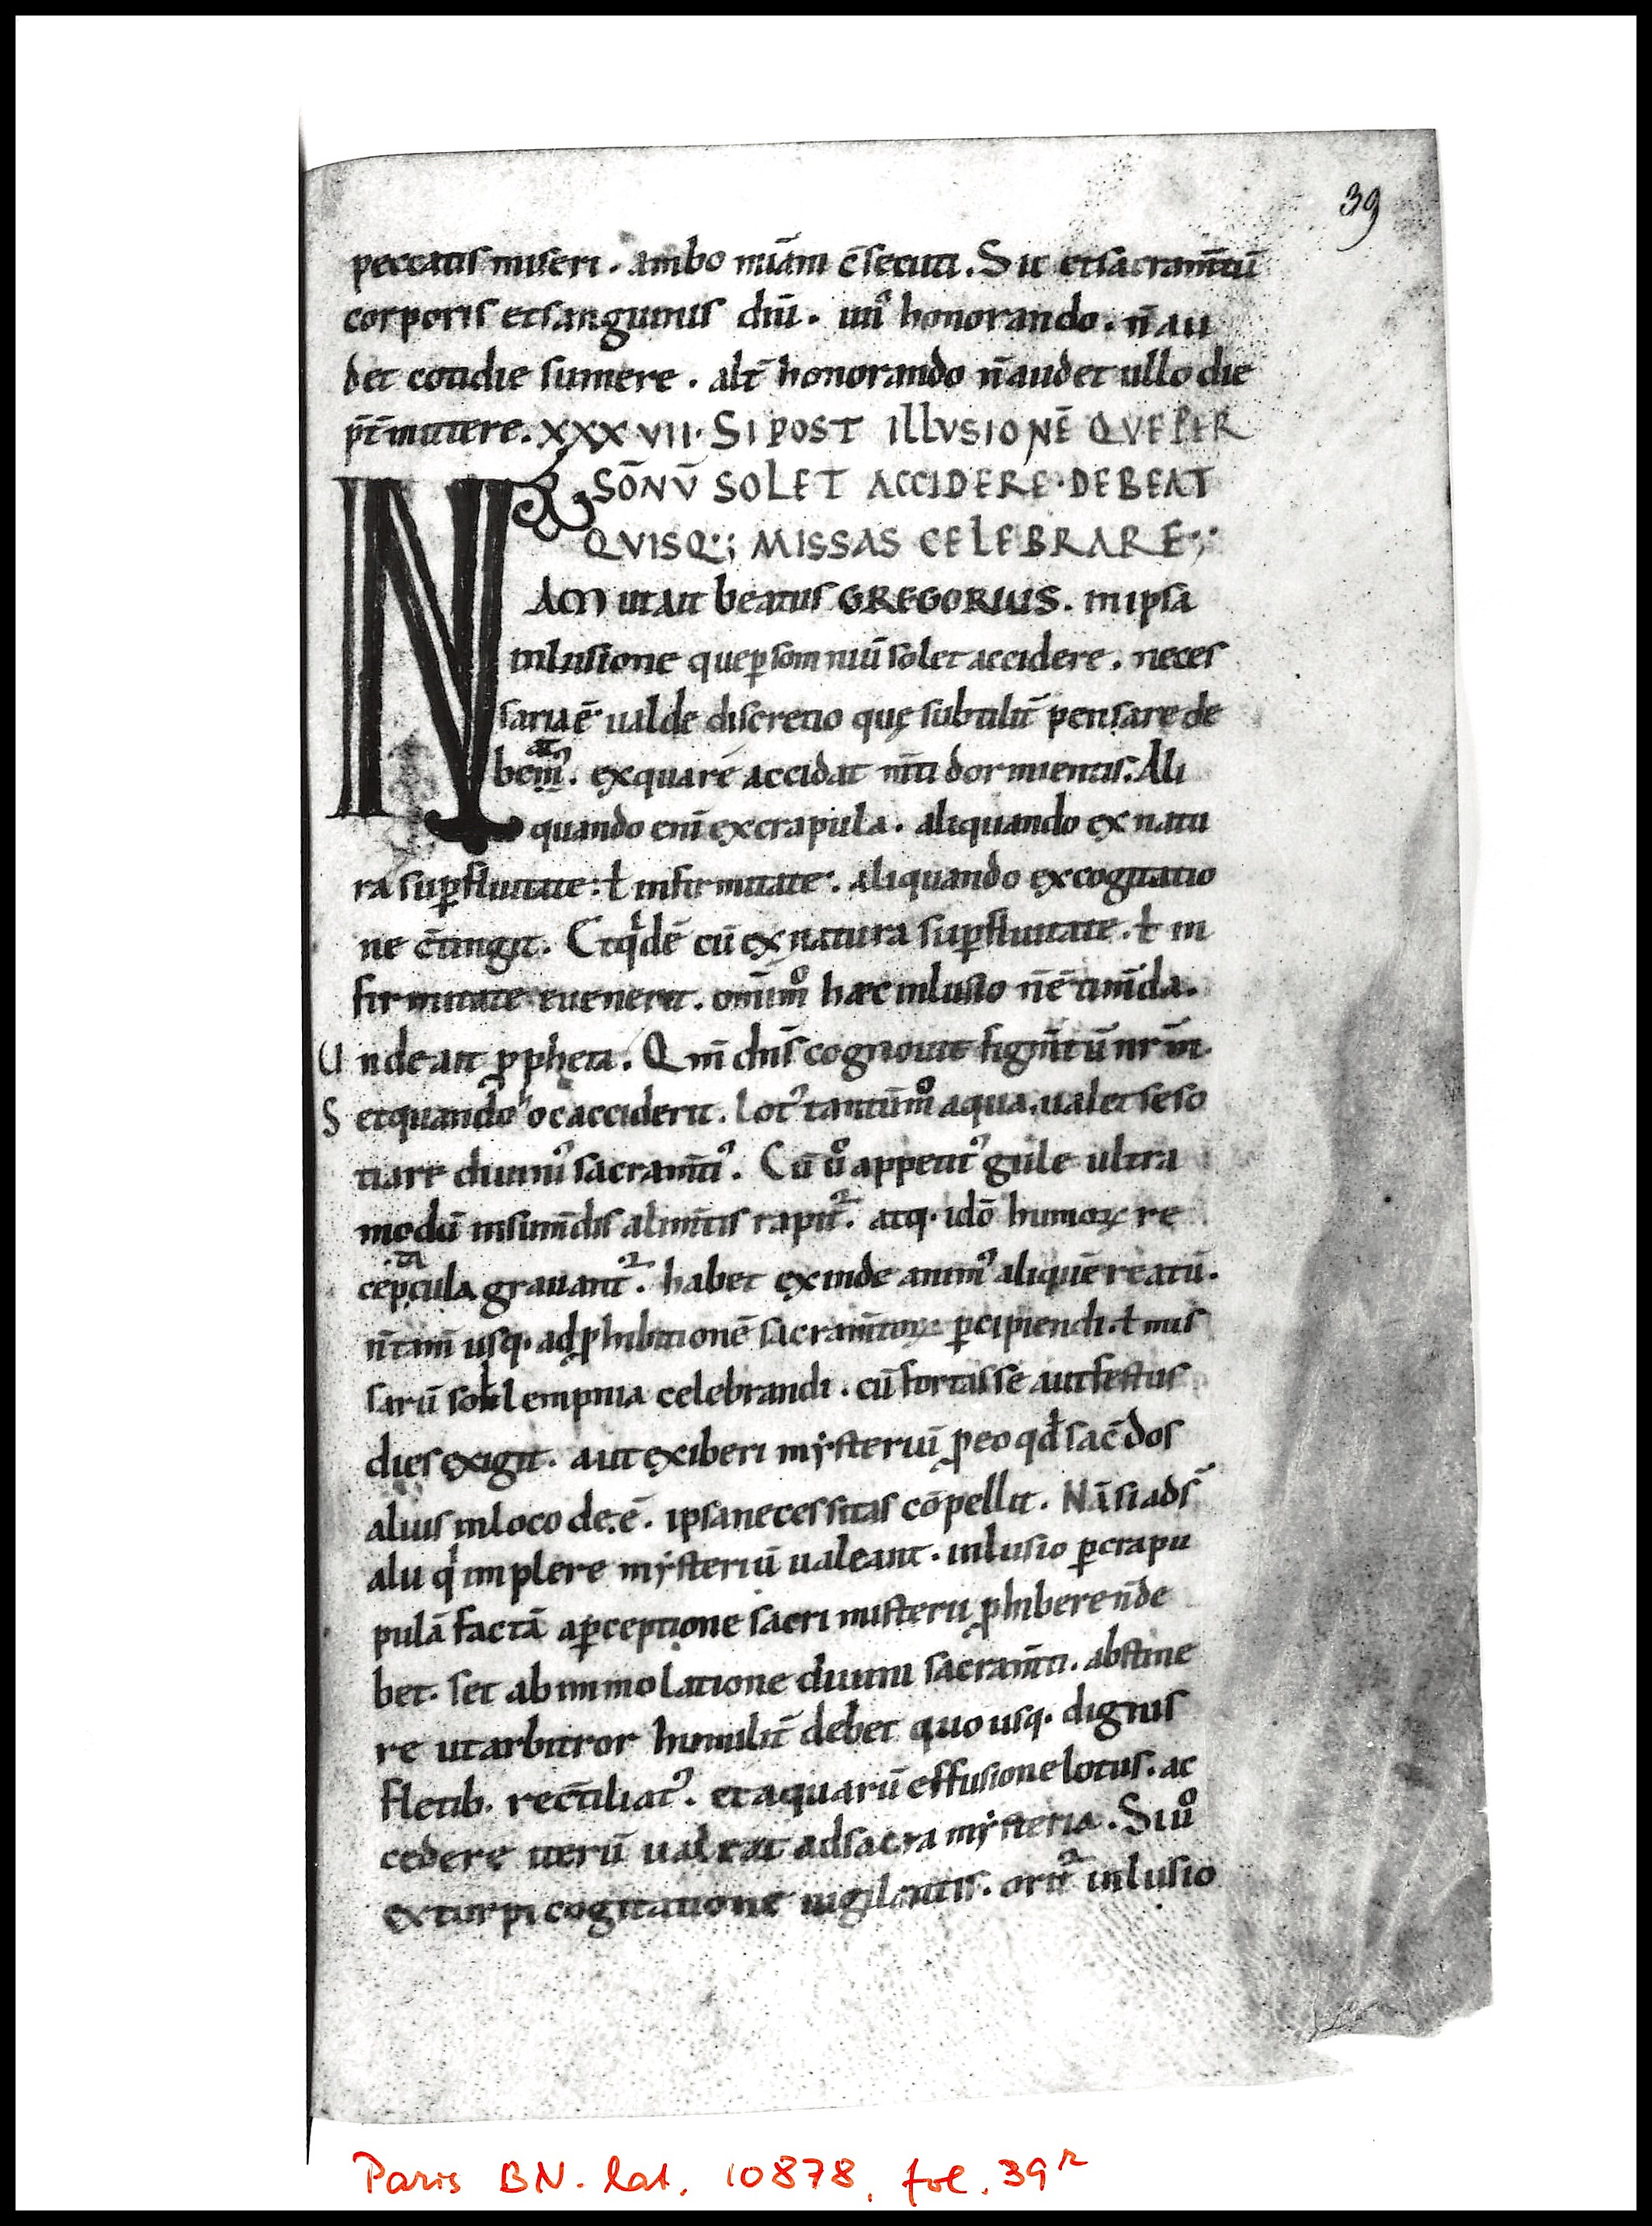 39
peccatis miseri. ambo mīam c̄secuti. Sic et sacram̄tū
corporis et sanguinis diū. un᾽ honorando. n̄ au
det cotidie sumere. alt̄ honorando n̄ audet ullo die
p̄t̄mittere. XXXVII. SI POST ILLVSIONĒ QVE PER
SŌNV̄ SOLET ACCIDERE·DEBEAT
QVISQ·; MISSAS CELEBRARE;·
NAM ut ait beatus GREGORIUS. in ipsa
inlusione que ꝑ somniū solet accidere. neces
saria ē· ualde discretio quę subtilit̄ pensare de
bem᾽. ex qua re accidat m̄ti dormientis. Ali
quando eni᷃ ex crapula. aliquando ex natu
ra suꝑfluitate: ł infirmitate. aliquando ex cogitatio
ne c̄tingit. Et qͥdē cū ex natura suꝑfluitate. ł in
firmitate euenerit. om̄imͦ haec inlusio n̄ ē tim̄da.
Unde ait ꝓpheta. Qm̄ dn̄s cognouit figm̄tū nr̄m
Set quando hoc acciderit. lot᾽ tantūmͦ aqua. ualet se so
tiare diuini᾽ sacram̄ti᾽. Cū ũͦ appetit᾽ gule ultra
modū in sum̄dis alim̄tis rapit᷑. atq· idō humoꝝ re
ceptacula grauant᷑. habet exinde anim᾽ aliquē reatū.
n̄ tam̄ usq· ad ꝓhibitionē sacram̄toꝝ ꝑcipiendi. ł mis
sarū sollempnia celebrandi. cū fortasse aut festus
dies exigit. aut exiberi mẏsteriū ꝓ eo qđ sac̄dos
alius in loco de.ē. ipsa necessitas cōpellit. Nā si ads̄
alii qͥ implere mẏsteriū ualeant. inlusio ꝑ crapu
pulā factā a ꝑceptione sacri misterii ꝓhibere n̄ de
bet. set ab immolatione diuini sacram̄ti. abstine
re ut arbitror humilit̄ debet quo usq· dignis
fletib· rec̄tiliat᾽. et aquarū effusione lotus. ac
cedere iterū ualeat ad sacra mẏsteria. Si ũͦ
ex turpi cogitatione uigilantis. orit᷑ inlusio
Paris BN. lat. 10878, fol. 39ʳ